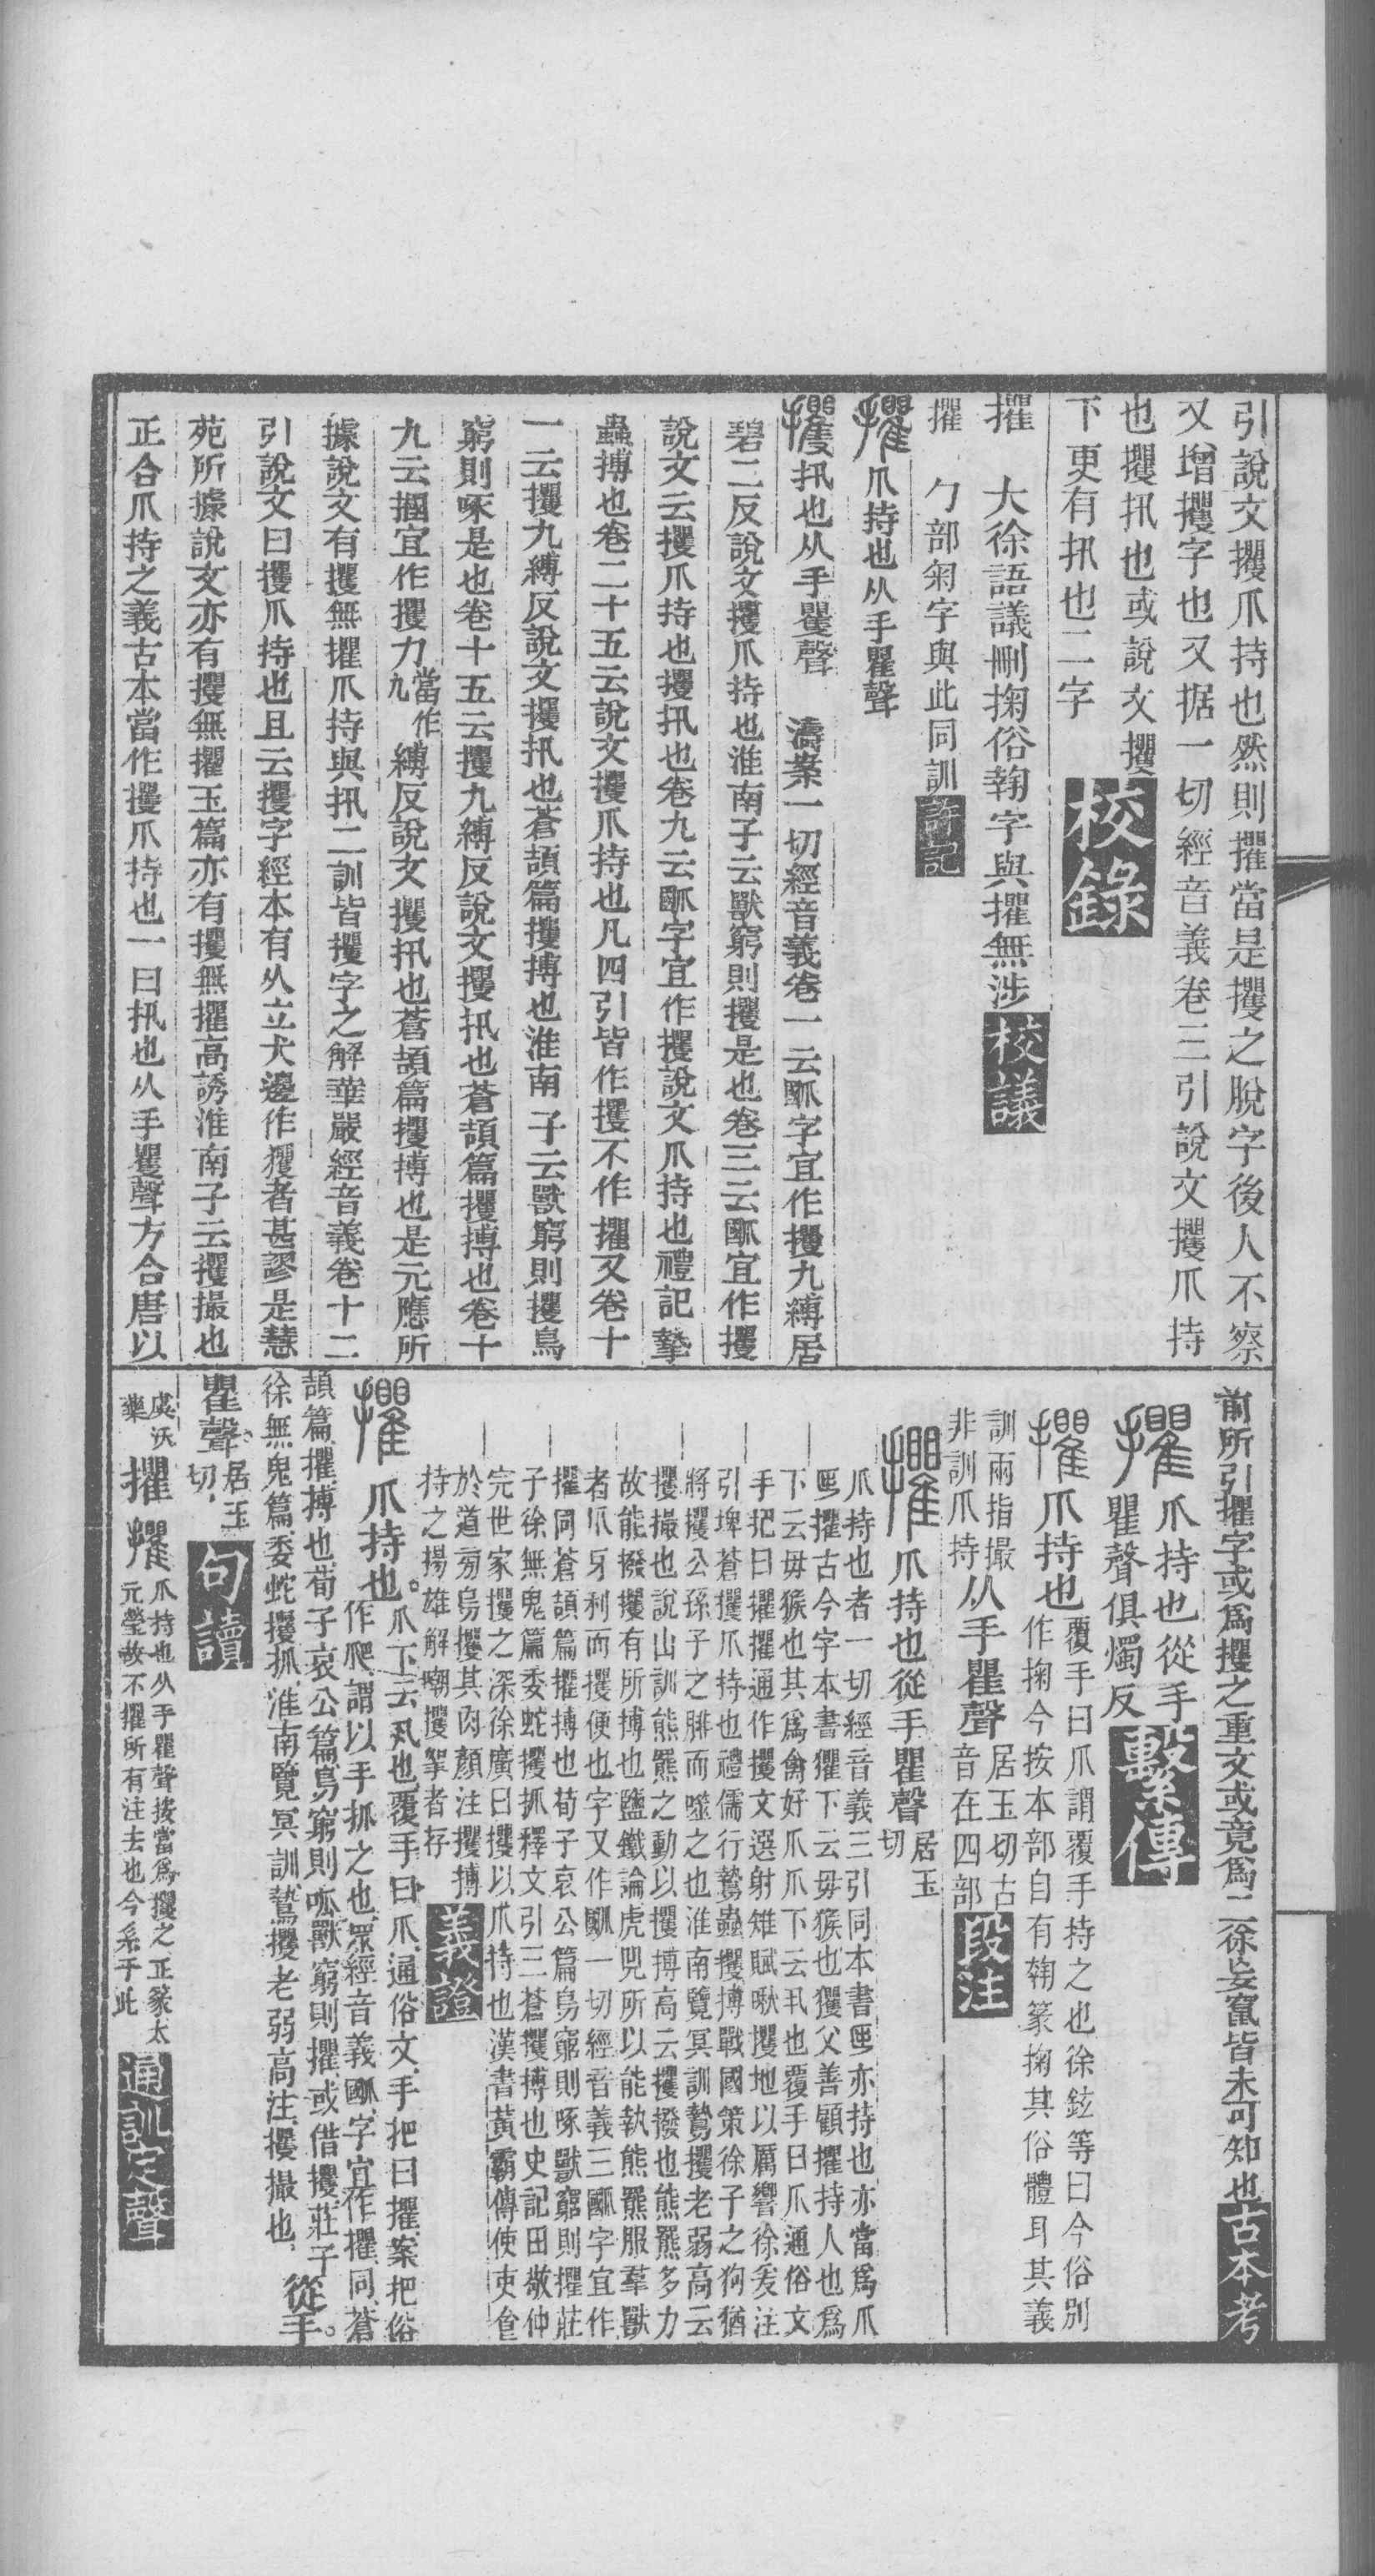 引說文攫爪持也然則㩴當是攫之脫字後人不察
又增攫字也又据一切經音義卷三引說文攫爪持
也攫扟也或說文攫
下更有扟也二字
校錄
㩴　大徐語議刪掬俗䩕字與㩴無涉
校議
㩴　勹部匊字與此同訓
許記
㩴爪持也从手瞿聲
攫扟也从手矍聲　濤案一切經音義卷一云㕚字宜作攫九縛居
碧二反說文攫爪持也淮南子云獸窮則攫是也卷三云宜作攫
說文云攫爪持也攫扟也卷九云字宜作攫說文爪持也禮記摯
蟲搏也卷二十五云說文攫爪持也凡四引皆作攫不作㩴又卷十
一云攫九縛反說文攫扟也蒼頡篇攫搏也淮南子云獸窮則攫鳥
窮則啄是也卷十五云攫九縛反說文攫扟也蒼頡篇攫搏也卷十
九云摑宜作攫力當作九縛反說文攫扟也蒼頡篇攫搏也是元應所
據說文有攫無㩴爪持與扟二訓皆攫字之解華嚴經音義卷十二
引說文曰攫爪持也且云攫字經本有从立犬邊作玃者甚謬是慧
苑所據說文亦有攫無㩴玉篇亦有攫無㩴高誘淮南子云攫撮也
正合爪持之義古本當作攫爪持也一曰扟也从手矍聲方合唐以
前所引㩴字或爲攫之重文或竟爲二徐妄竄皆未可知也
古本考
㩴爪持也從手
瞿聲俱燭反
繫傳
㩴爪持也覆手曰爪謂覆手持之也徐鉉等曰今俗別
作掬今按本部自有䩕篆掬其俗體耳其義
訓兩指撮
非訓爪持从手瞿聲居玉切古
音在四部
段注
㩴爪持也從手瞿聲居玉
切
爪持也者一切經音義三引同本書亦持也亦當爲爪
㩴古今字本書玃下云毋猴也玃父善顧㩴持人也爲
下云毋猴也其爲禽好爪爪下云丮也覆手曰爪通俗文
手把曰㩴㩴通作攫文選射雉賦瞅攫地以厲響徐爰注
引埤蒼攫爪持也禮儒行鷙蟲攫搏戰國策徐子之狗猶
將攫公孫子之腓而噬之也淮南覽冥訓鷙攫老弱高云
攫撮也說山訓熊羆之動以攫搏高云攫撥也熊羆多力
故能撥攫有所搏也鹽鐵論虎兕所以能執熊羆服羣獸
者爪牙利而攫便也字又作一切經音義三字宜作
㩴同蒼頡篇㩴搏也荀子哀公篇鳥窮則啄獸窮則㩴莊
子徐無鬼篇委蛇攫抓釋文引三蒼攫搏也史記田敬仲
完世家攫之深徐廣曰攫以爪持也漢書黃霸傳使吏食
於道旁烏攫其肉顏注攫搏
持之揚雄解嘲攫挐者存
義證
㩴爪持也爪下云丮也覆手曰爪通俗文手把曰㩴案把俗
作爬謂以手抓之也眾經音義字宜作㩴同蒼
頡篇㩴搏也荀子哀公篇鳥窮則啄獸窮則㩴或借攫莊子
徐無鬼篇委蛇攫抓淮南覽冥訓鷙攫老弱高注攫撮也從手
瞿聲居玉
切
句讀
㩴㩴爪持也从手瞿聲按當爲攫之正篆太
元瑩故不㩴所有注去也今系于此
虞沃
藥
通訓定聲